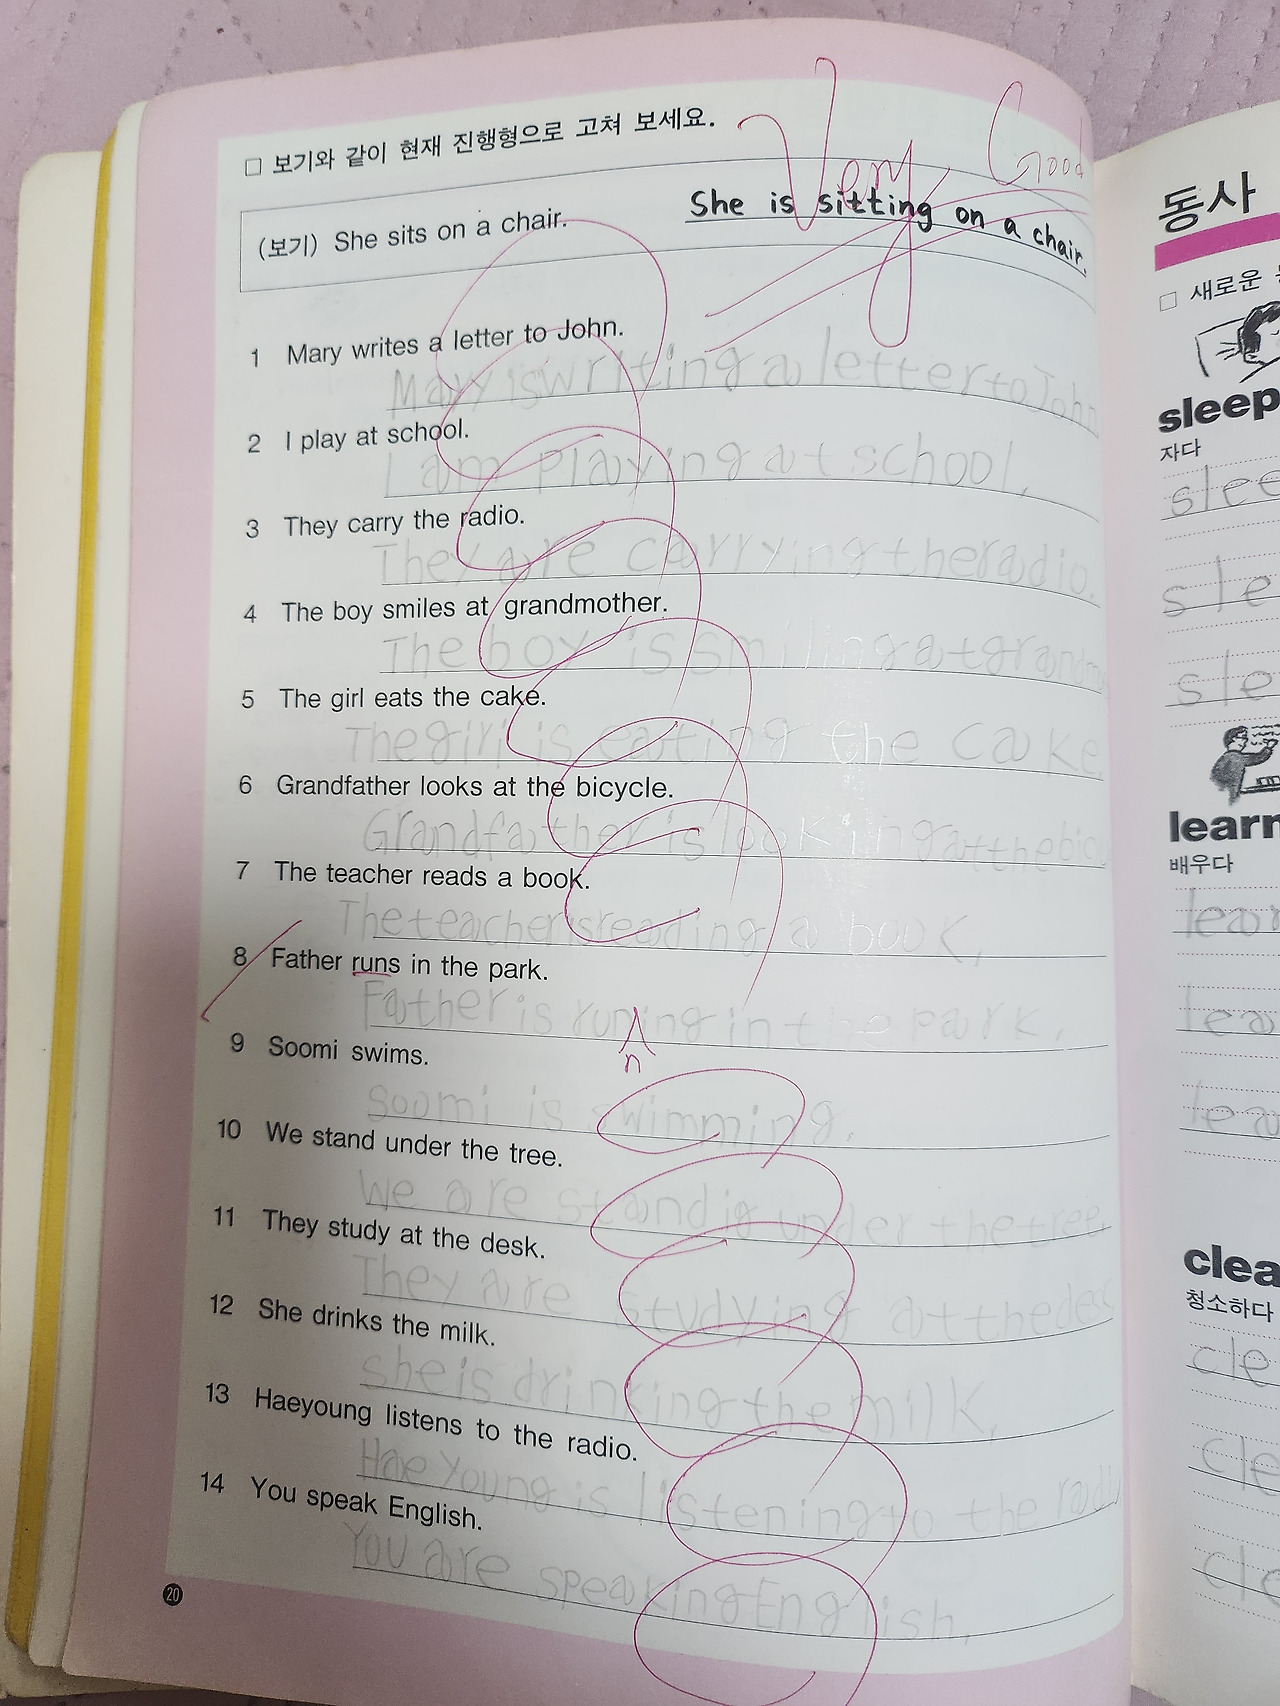 □ 보기와 같이 현재 진행형으로 고쳐 보세요.
Very Good
(보기) She sits on a chair. She is sitting on a chair.
1 Mary writes a letter to John.
Mary is writing a letter to John
2 I play at school.
I am playing at school.
3 They carry the radio.
They are carrying the radio.
4 The boy smiles at grandmother.
The boy is smiling at grandm
5 The girl eats the cake.
The girl is eating the cake
6 Grandfather looks at the bicycle.
Grandfather is looking at the bic
7 The teacher reads a book.
The teacher is reading a book.
8 Father runs in the park.
Father is runing in the park.
n
9 Soomi swims.
Soomi is swimming.
10 We stand under the tree.
We are standig under the tree.
11 They study at the desk.
They are studying at the des
12 She drinks the milk.
she is drinking the milk.
13 Haeyoung listens to the radio.
Haeyoung is listening to the radi
14 You speak English.
You are speaking English.
20
동사
□ 새로운
sleep
자다
slee
sle
sle
learn
배우다
lear
lea
lea
clea
청소하다
cle
cle
cle